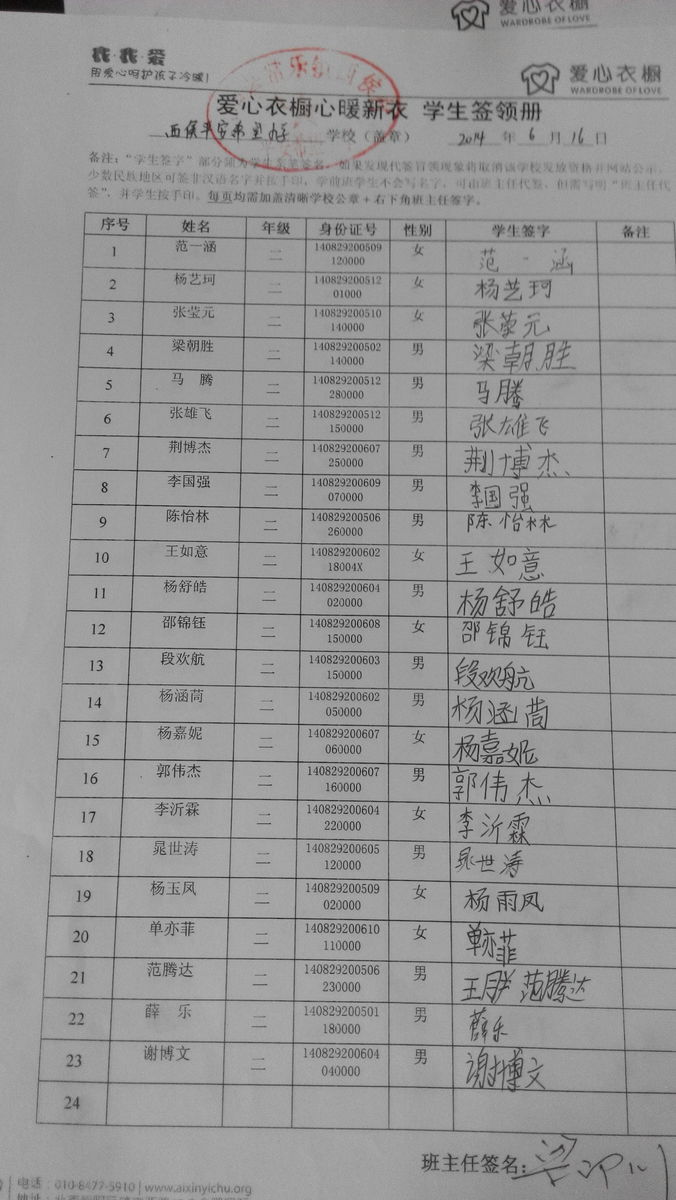 爱心衣橱
WARDROBE OF LOVE
我·我·爱
用爱心呵护孩子冷暖!
爱心衣橱
WARDROBE OF LOVE
爱心衣橱心暖新衣 学生签领册
学校（盖章） 2014 年 6 月 16 日
备注："学生签字"部分须为学生亲笔签名，如果发现代签冒领现象将取消该学校发放资格并网站公示。
少数民族地区可签非汉语名字并按手印，学前班学生不会写名字，可由班主任代签，但需写明"班主任代
签"，并学生按手印。每页均需加盖清晰学校公章+右下角班主任签字。
序号 姓名 年级 身份证号 性别 学生签字 备注
1 范一涵 二 140829200509120000 女 范一涵
2 杨艺珂 二 14082920051201000 女 杨艺珂
3 张莹元 二 140829200510140000 女 张莹元
4 梁朝胜 二 140829200502140000 男 梁朝胜
5 马 腾 二 140829200512280000 男 马腾
6 张雄飞 二 140829200512150000 男 张雄飞
7 荆博杰 二 140829200607250000 男 荆博杰
8 李国强 二 140829200609070000 男 李国强
9 陈怡林 二 140829200506260000 男 陈怡林
10 王如意 二 14082920060218004X 女 王如意
11 杨舒皓 二 140829200604020000 男 杨舒皓
12 邵锦钰 二 140829200608150000 女 邵锦钰
13 段欢航 二 140829200603150000 男 段欢航
14 杨涵茼 二 140829200602050000 男 杨涵茼
15 杨嘉妮 二 140829200607060000 女 杨嘉妮
16 郭伟杰 二 140829200607160000 男 郭伟杰
17 李沂霖 二 140829200604220000 女 李沂霖
18 晁世涛 二 140829200605120000 男 晁世涛
19 杨玉凤 二 140829200509020000 女 杨雨凤
20 单亦菲 二 140829200610110000 女 单亦菲
21 范腾达 二 140829200506230000 男 范腾达
22 薛 乐 二 140829200501180000 男 薛乐
23 谢博文 二 140829200604040000 男 谢博文
24
班主任签名：
电话：010-8477-5910 | www.aixinyichu.org